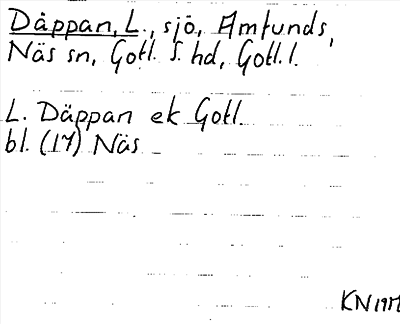 Däppan, L., sjö, Amfunds,
Näs sn, Gotl. S. hd, Gotl. l.
L. Däppan ek Gotl.
bl. (17) Näs
KN